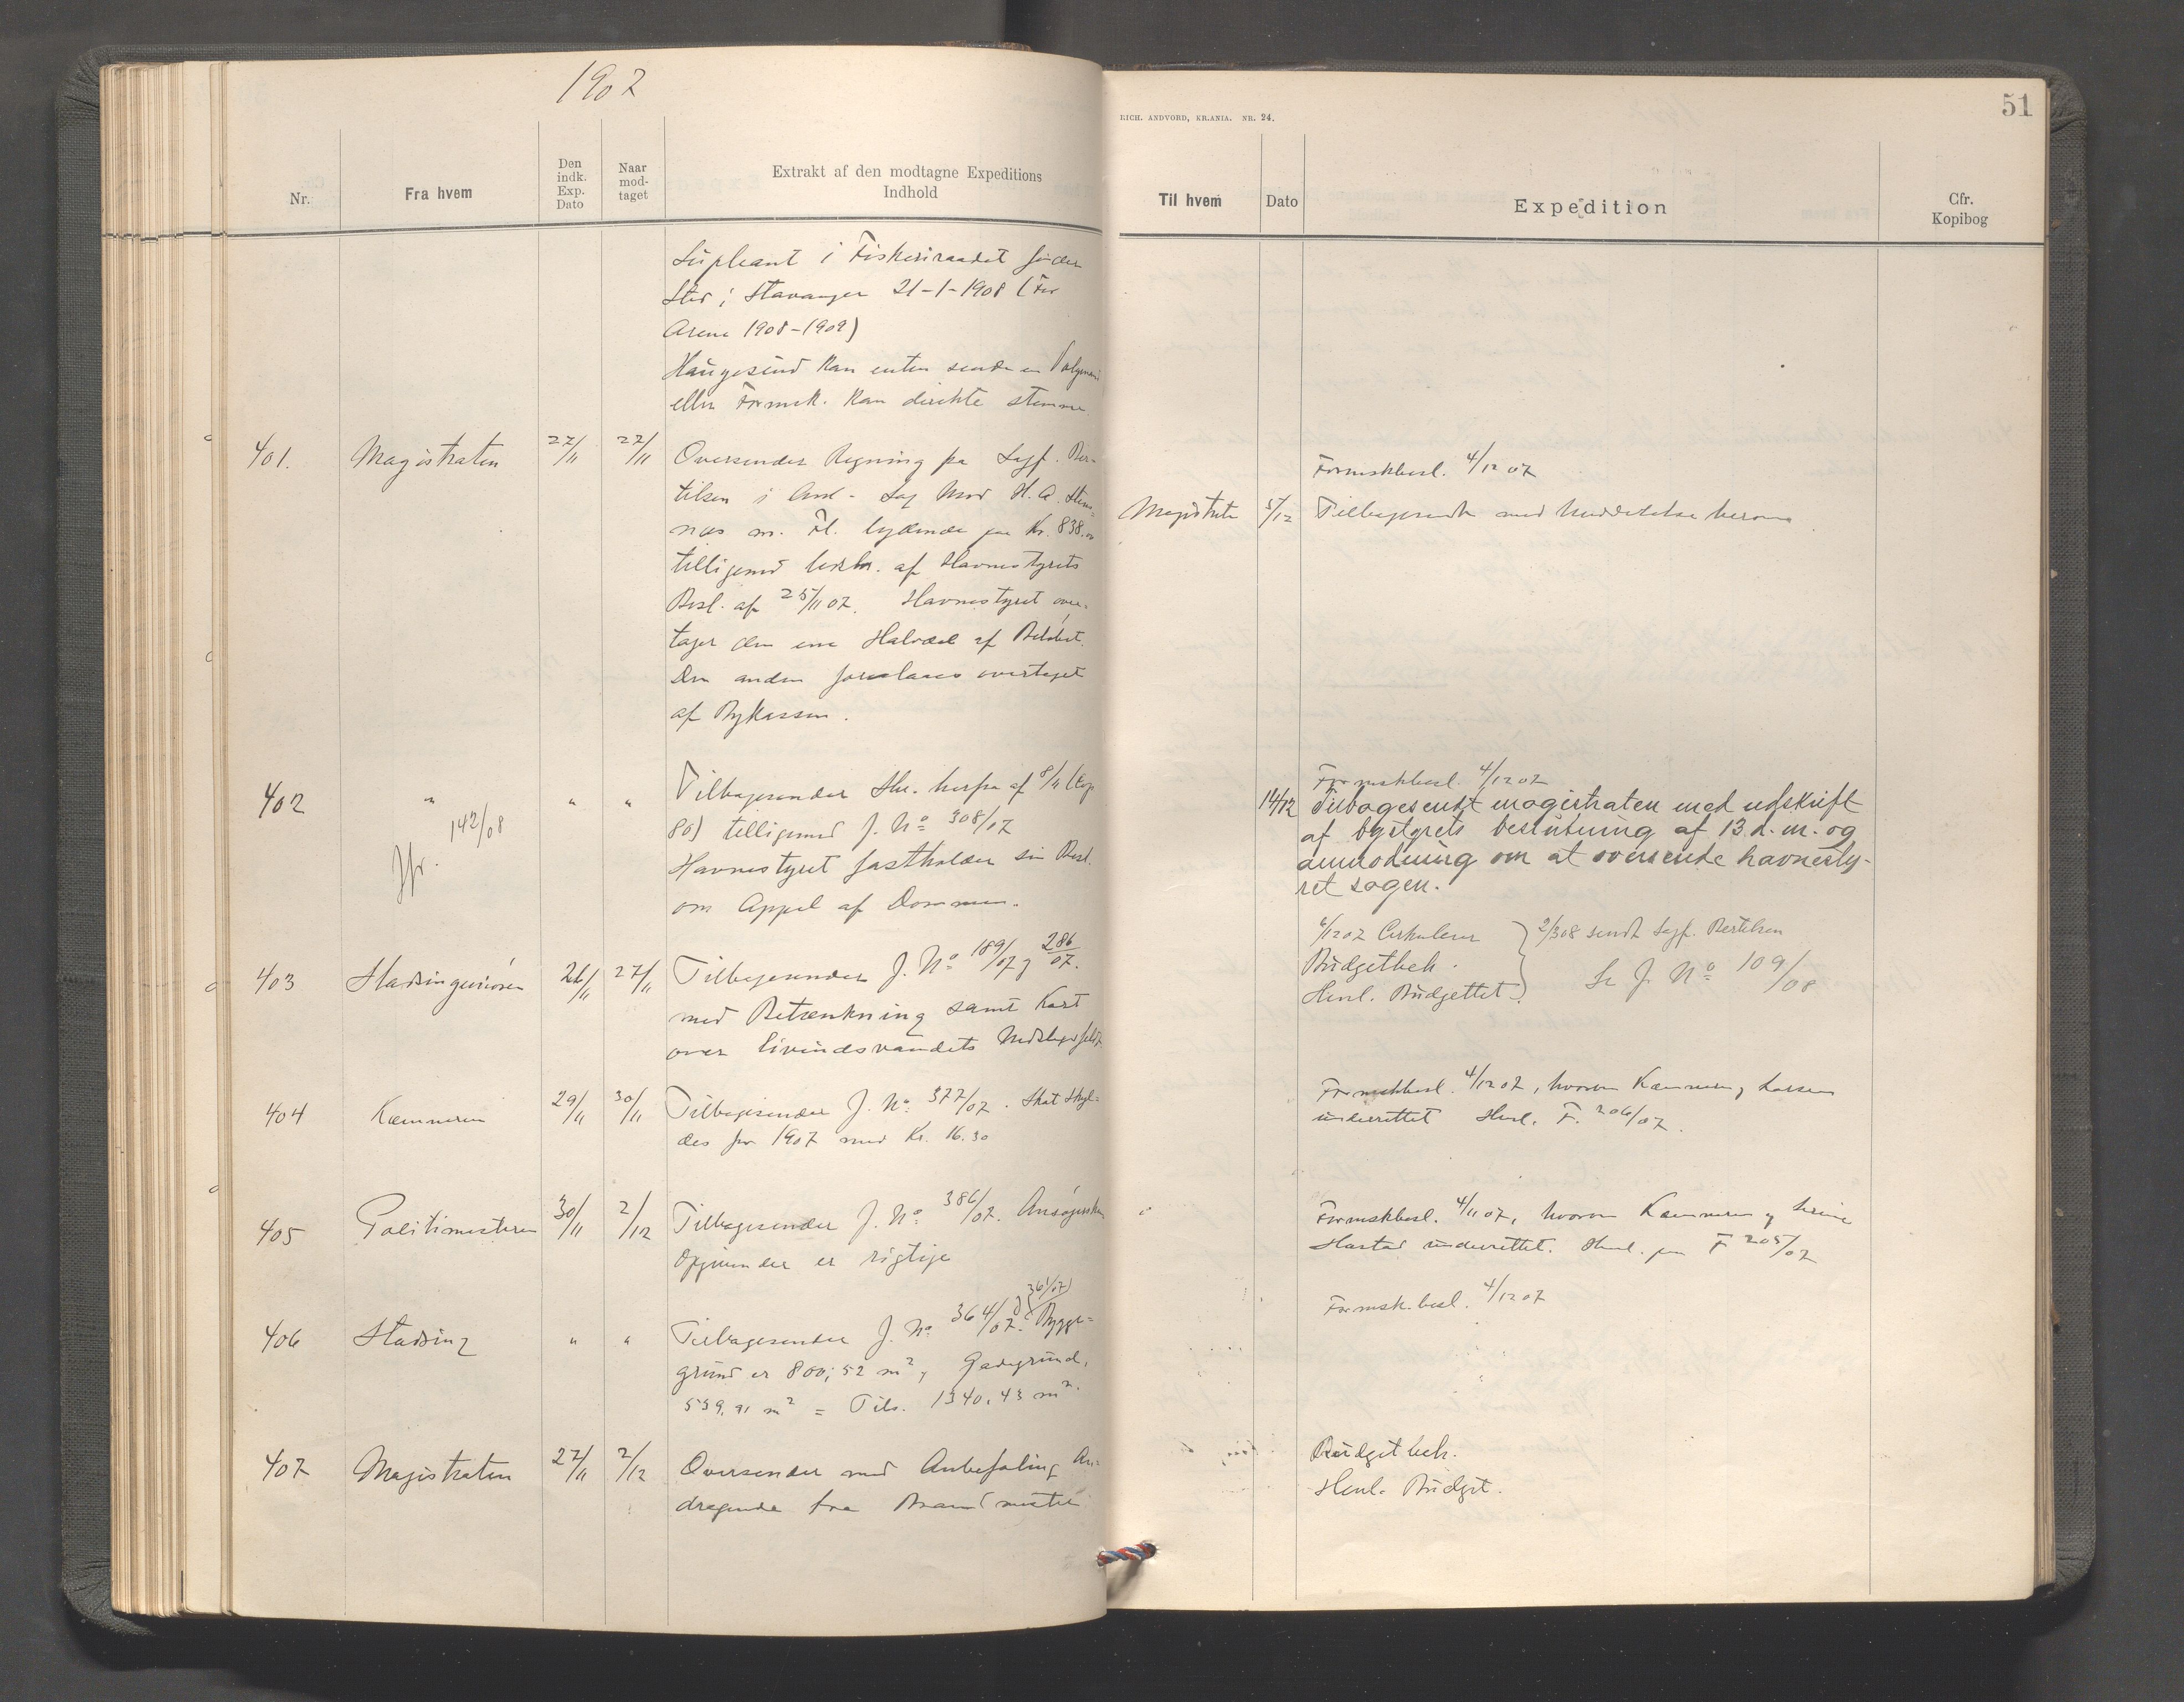 1907
Nr.
Fra hvem
Den
indk.
Exp.
Dato
Naar
mod-
taget
Extrakt af den modtagne Expeditions
Indhold
Supleant i Fiskeriraadet finder
Sted i Stavanger 21-1-1908 (For
Arene 1908-1909)
Haugesund kan enten sende en Valgmand
eller Formsk. kan direkte stemme
401. Magistraten 27/11 27/11 Oversender Regning fra Sagf. Ber-
tilsen i Anl. Sag mod H. A. Stens-
næs m. Fl. lydende paa Kr. 838.00
tilligemed Udskr. af Havnestyrets
Besl. af 25/11 07. Havnestyret over-
tager den ene Halvdel af Beløbet.
Den anden foreslaaes overtaget
af Bykassen.
402 " " " Tilbagesender Skr. herfra af 8/11 (Kop
80) tilligemed J. No 308/07
Jfr. 142/08
Havnestyret fastholder sin Besl.
om Appel af Dommen.
403 Stadsingeniøren 26/11 27/11 Tilbagesender J. No 189/07 og 286/07.
med Betænkning samt Kart
over Eivindsvandets Nedslagsfeldt
404 Kæmneren 29/11 30/11 Tilbagesender J. No. 377/07. Skat skyl-
des for 1907 med Kr. 16.30
405 Politimesteren 30/11 2/12 Tilbagesender J. No. 386/07. Ansøgerskens
Opgivender er rigtige
406 Stadsing " " Tilbagesender J. No. 364/07. (361/07) Bygge-
grund er 800,52 m2, Gadegrund,
539,91 m2 = Tils. 1340,43 m2.
407 Magistraten 27/11 2/12 Oversender med Anbefaling An-
dragende fra Brandmester
RICH. ANDVORD, KR.ANIA. NR. 24.
51
Til hvem
Dato
Expedition
Cfr.
Kopibog
Formskbesl. 4/12 07
Magistraten 5/12 Tilbagesendt med Meddelelse herom
Formskbesl. 4/12 07
14/12 Tilbagesendt magistraten med udskrift
af bystyrets beslutning af 13. d. m. og
anmodning om at oversende havnesty-
ret sagen.
6/12 07 Cirkulerer
Budgetbeh.
Henl. Budgettet.
2/3 08 sendt Sagf. Bertilsen
Se J. No 109/08
Formskbesl. 4/12 07, hvorom Kæmneren og Larsen
underrettet Henl. F. 206/07.
Formskbesl. 4/11 07, hvorom Kæmneren og Serine
Hastad underrettet. Henl. paa F 205/07
Formsk. besl. 4/12 07
Budgetbeh.
Henl. Budget.